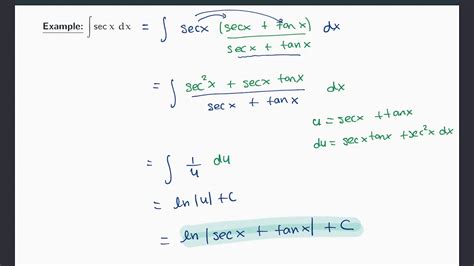 Example: ∫ sec x dx = ∫ secx (secx + tanx) / (secx + tanx) dx
= ∫ (sec²x + secx tanx) / (secx + tanx) dx
u = secx + tanx
du = secxtanx + sec²x dx
= ∫ 1/u du
= ln|u| + C
= ln|secx + tanx| + C